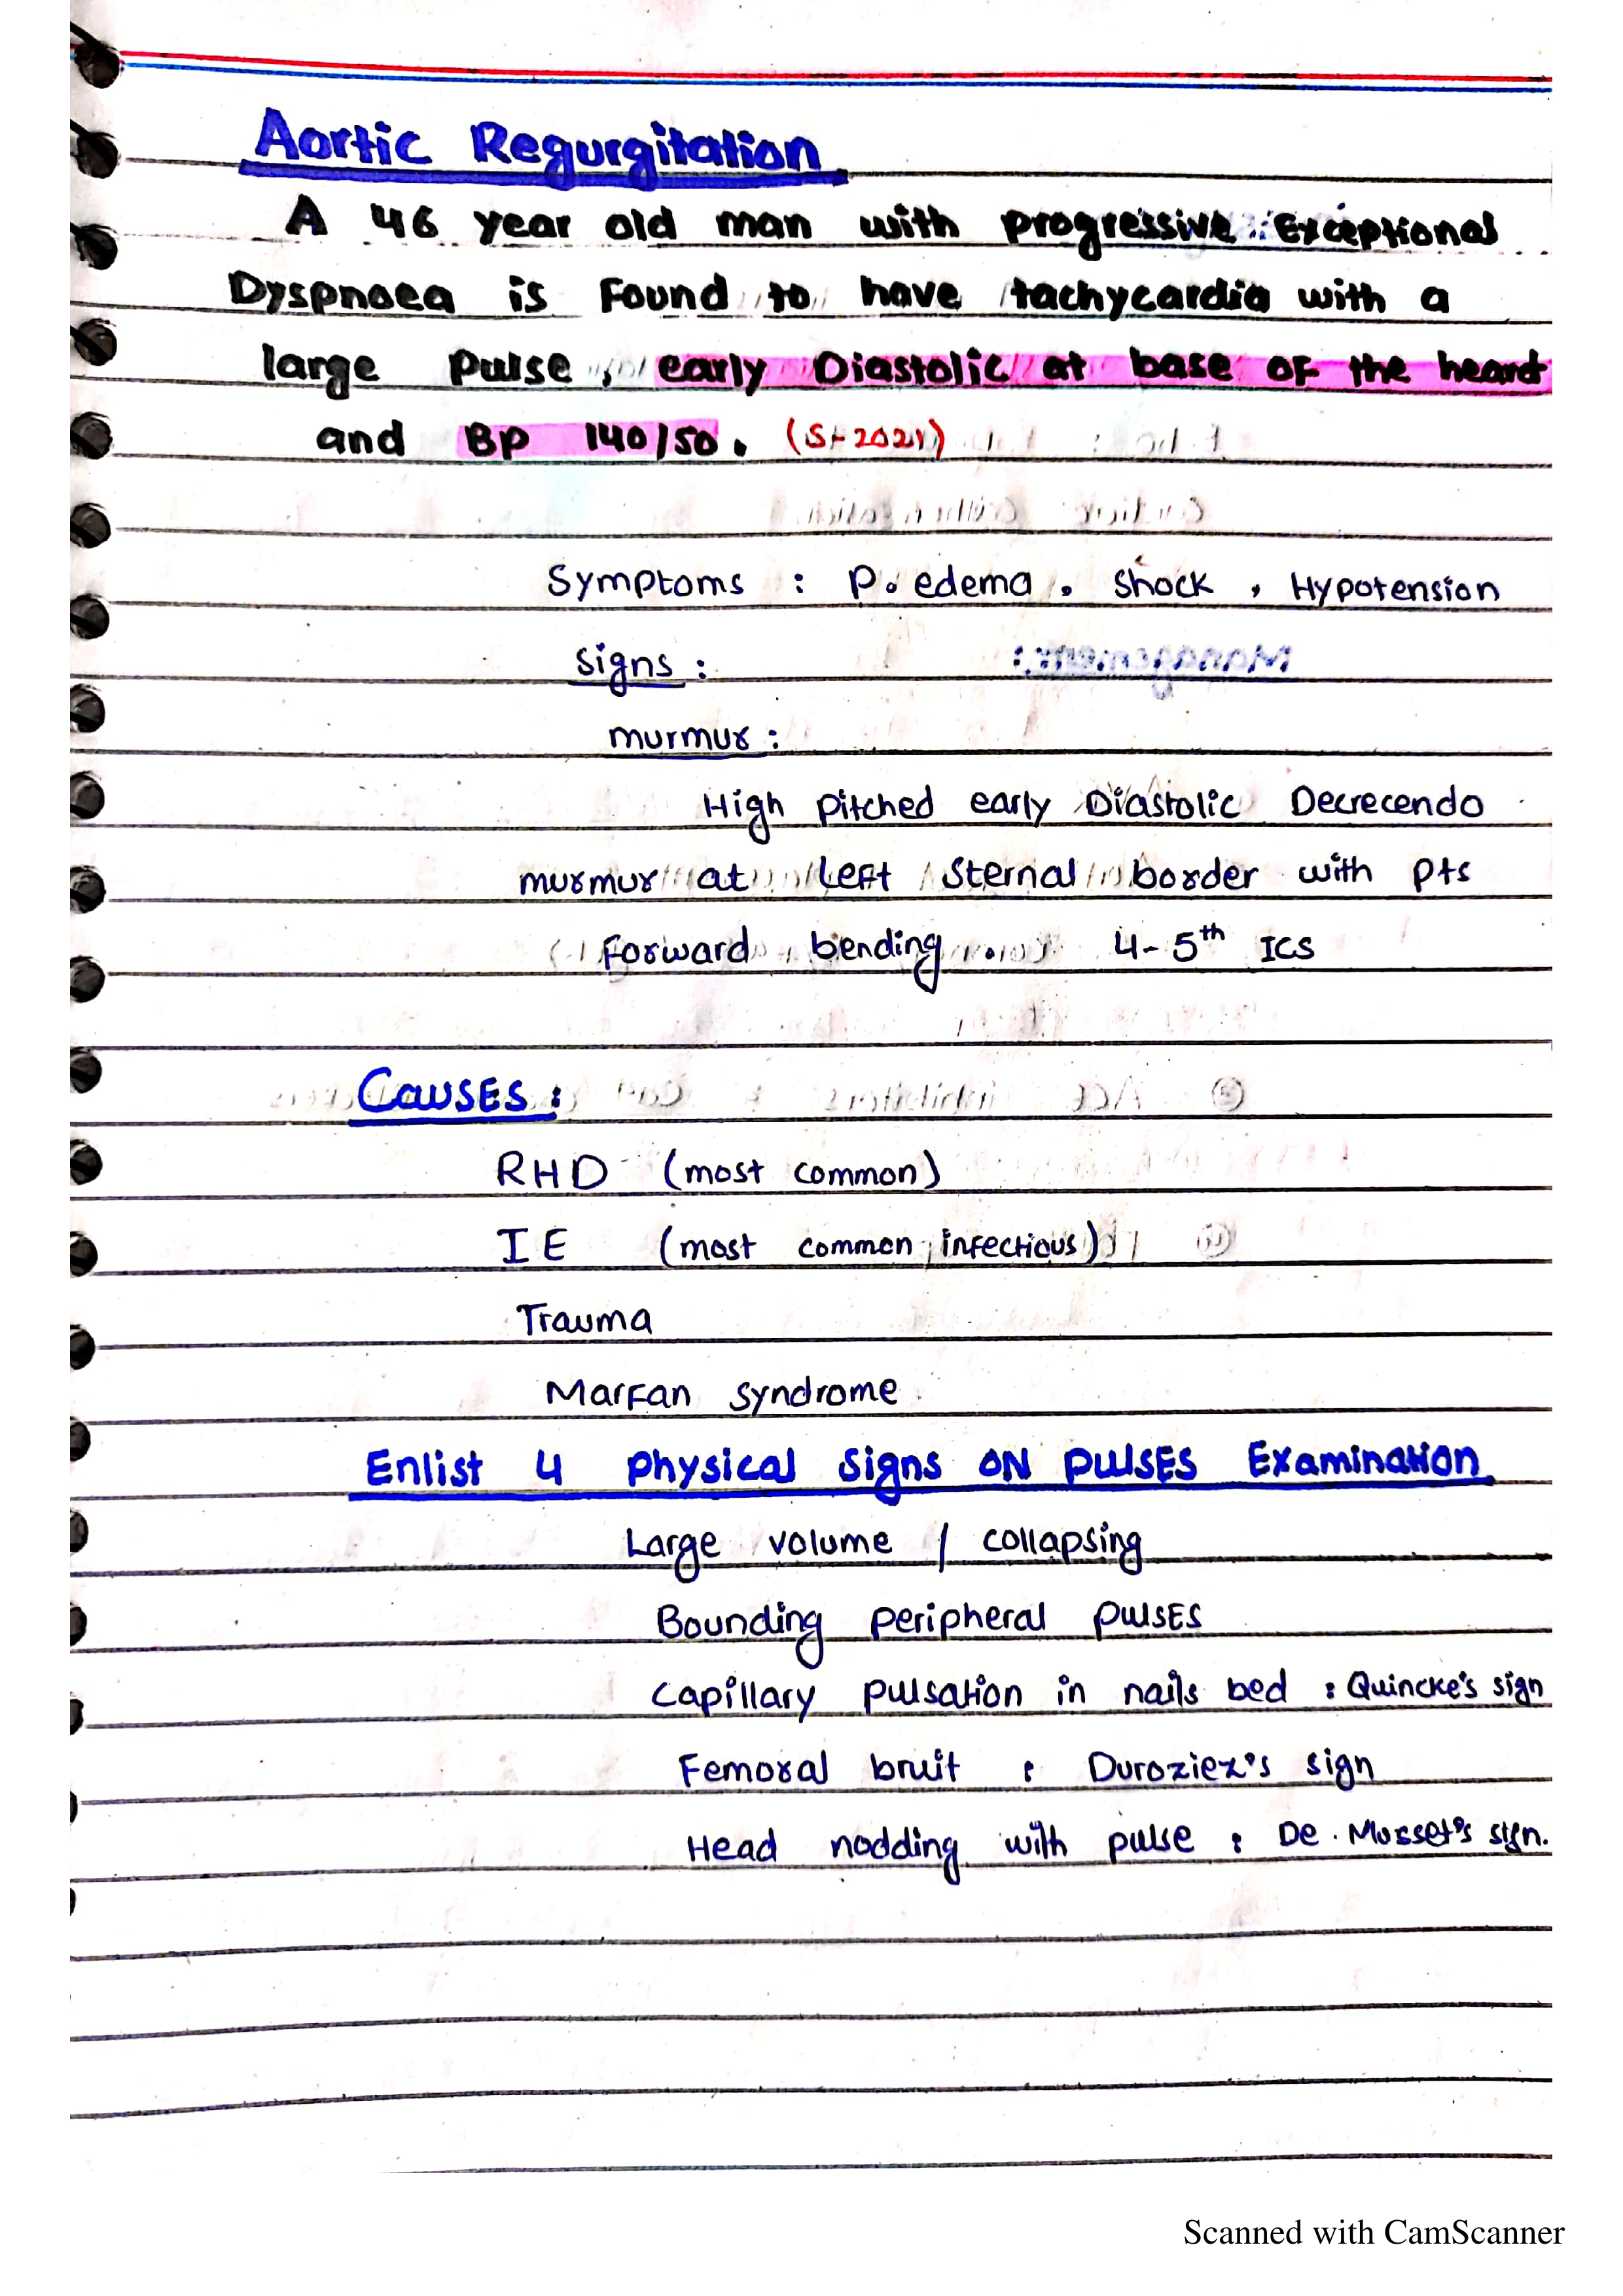 Aortic Regurgitation
A 46 year old man with progressive Exceptional
Dyspnoea is Found to have tachycardia with a
large Pulse, early Diastolic at base of the heard
and BP 140/50. (S-2021)
Symptoms : P. edema, Shock, Hypotension
signs :
murmur :
High pitched early Diastolic Decrecendo
murmur at left sternal border with Pts
Forward bending. 4-5th ICS
CAUSES :
RHD (most common)
IE (most common infectious)
Trauma
Marfan syndrome
Enlist 4 physical signs ON PULSES Examination
Large volume / collapsing
Bounding peripheral pulses
Capillary pulsation in nails bed : Quincke's sign
Femoral bruit : Duroziez's sign
Head nodding with pulse : De. Musset's sign.
Scanned with CamScanner